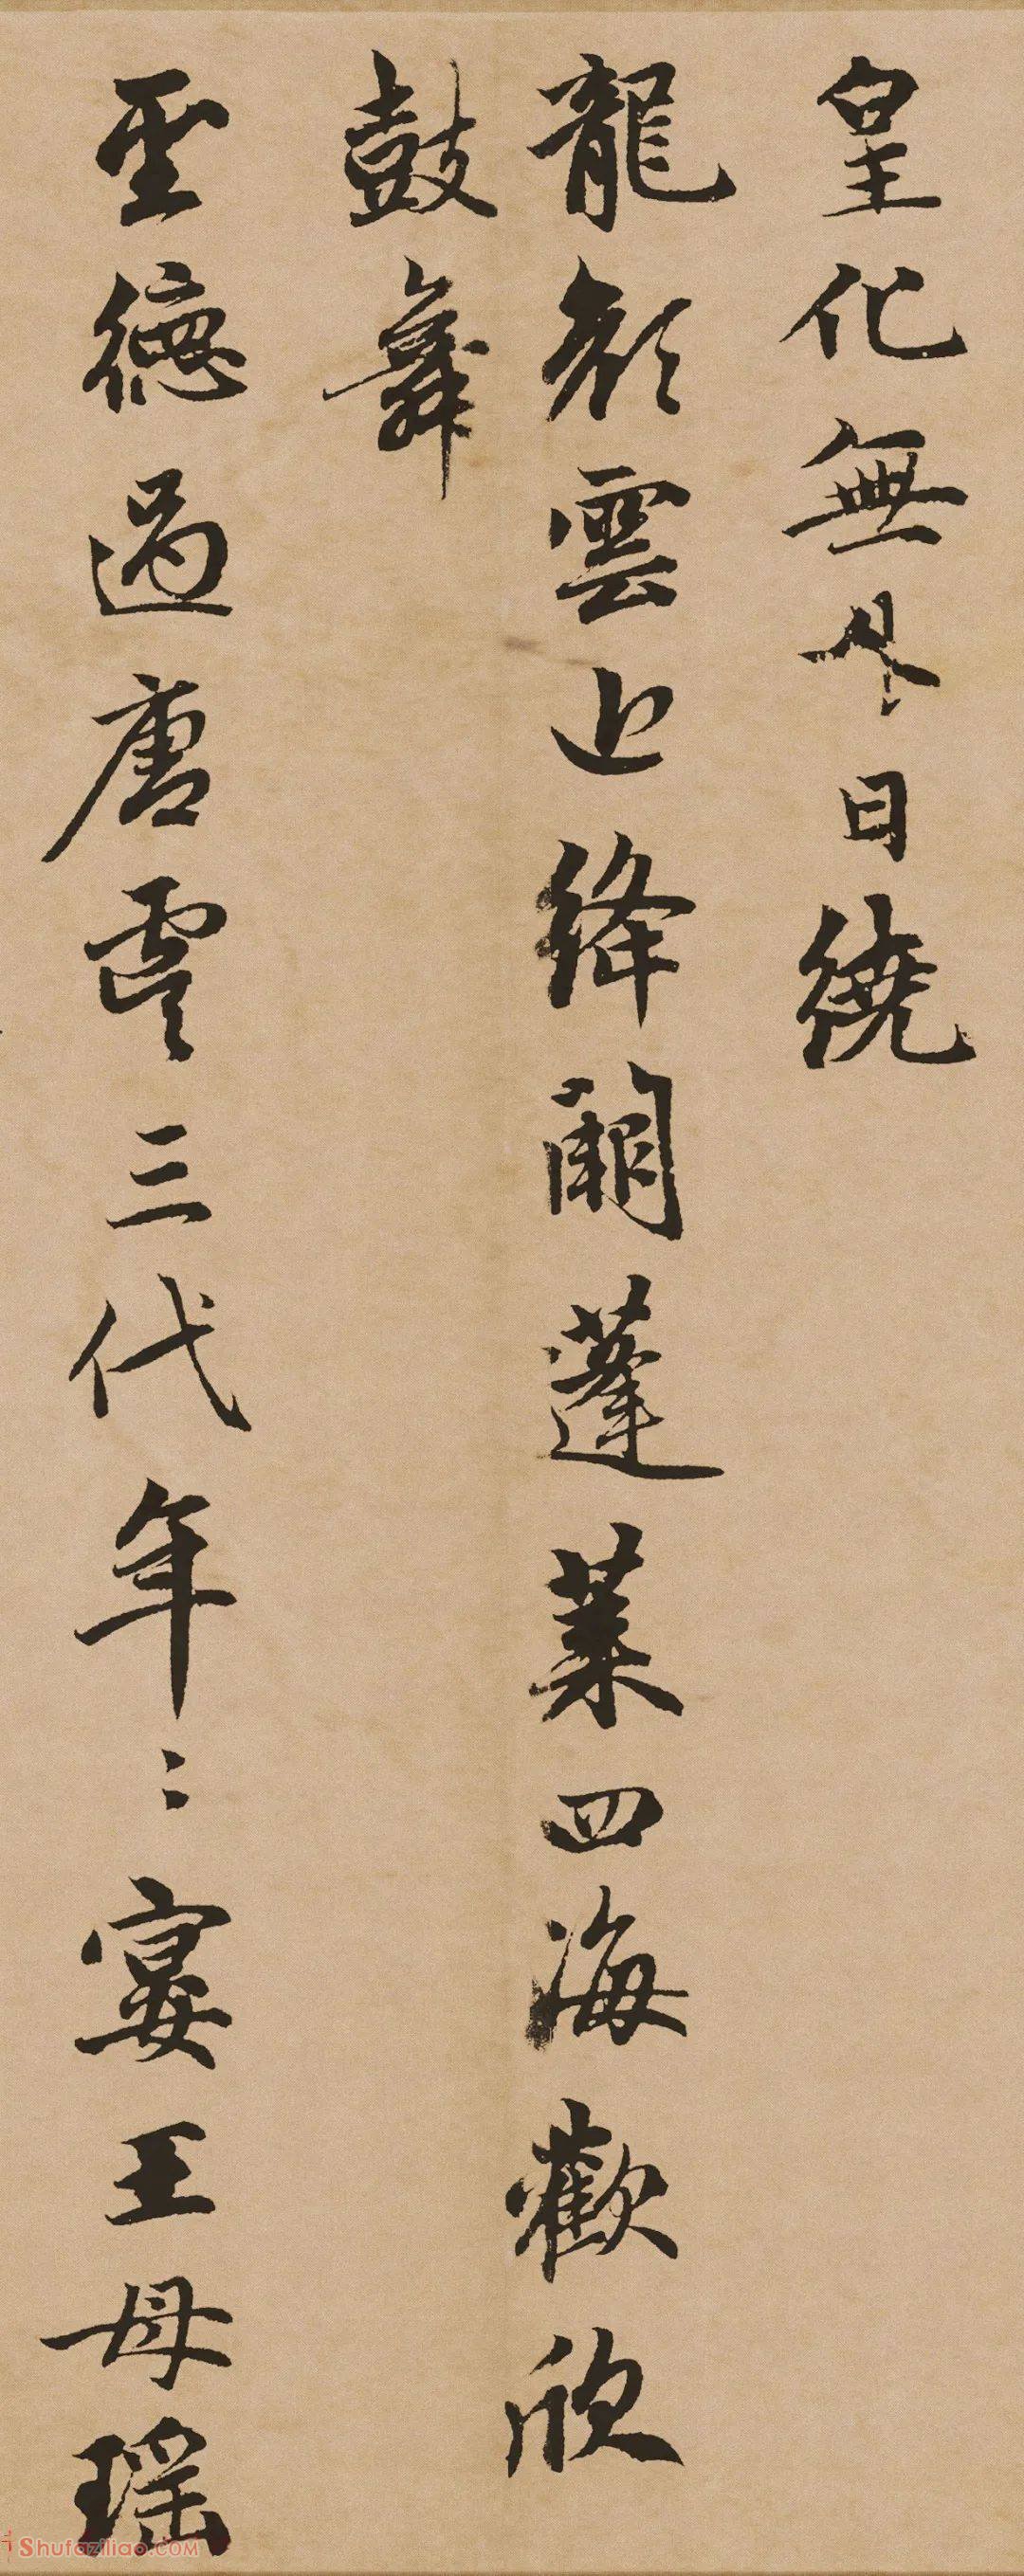 皇化無外日繞
龍顏雲近絳闕蓬萊四海歡欣
鼓舞
聖德過唐虞三代年〻宴王母瑤
Shufaziliao.com